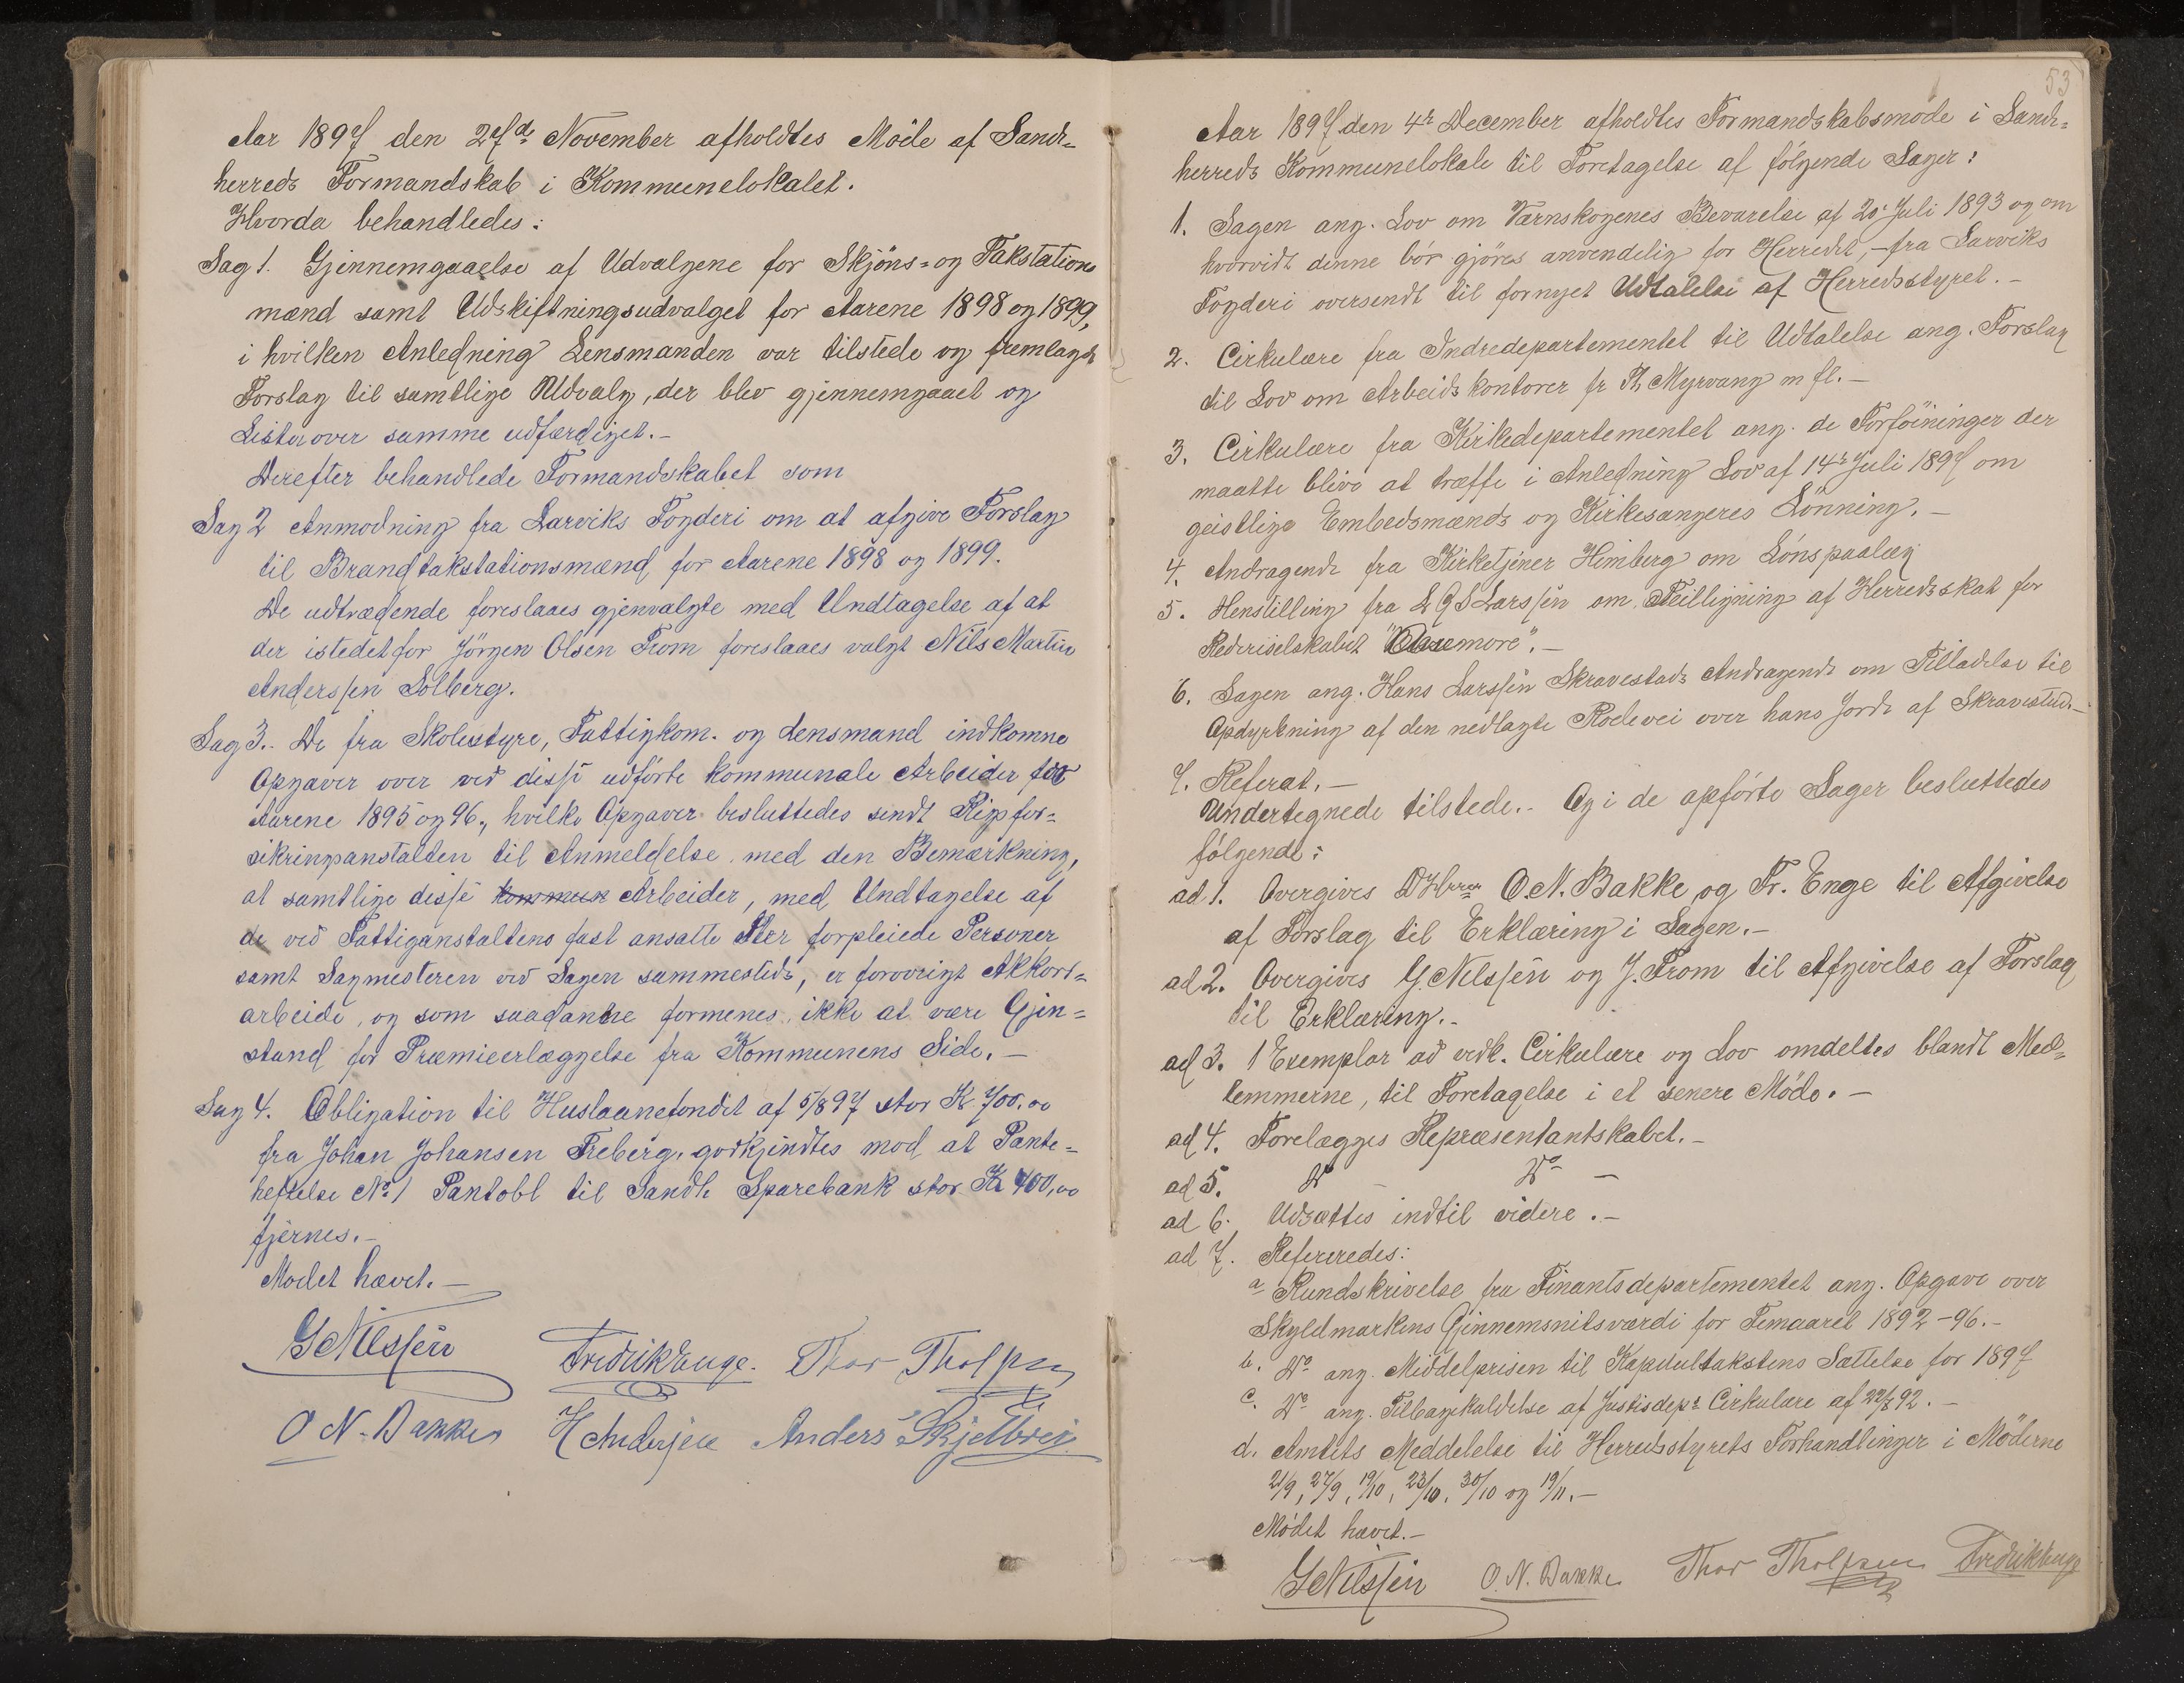 Aar 1897 den 27d. November afholdtes Møde af Sande-
herreds Formandskab i Kommunelokalet.
Hvorda behandledes:
Sag 1. Gjennemgaaelse af Udvalgene for Skjöns- og Takstations
mænd samt Udskiftningsudvalget for Aarene 1898 og 1899,
i hvilken Anledning Lensmanden var tilstede og fremlagde
Forslag til samtlige Udvalg, der blev gjennemgaaet og
Lister over samme udfærdiget.-
Derefter behandlede Formandskabet som
Sag 2 Anmodning fra Larviks Fogderi om at afgive Forslag
til Brandtakstationsmænd for Aarene 1898 og 1899.
De udtrædende foreslaaes gjenvalgte med Undtagelse af at
der istedetfor Jörgen Olsen From foreslaaes valgt Nils Martin
Anderssen Solberg.
Sag 3. De fra Skolestyre, Fattigkom. og Lensmand indkomne
Opgaver over ved disse udförte kommunale Arbeider for
Aarene 1895 og 96., hvilke Opgaver besluttedes sendt Rigsfor-
sikringsanstalten til Anmeldelse med den Bemærkning,
at samtlige disse Arbeider, med Undtagelse af
de ved Fattiganstaltens fast ansatte forpleiede Personer
samt Sagmesteren ved Sagen sammesteds, er forövrigt Akkord-
arbeide, og som saadanne formenes ikke at være Gjen-
stand for Præmieerlæggelse fra Kommunens Side.-
Sag 4. Obligation til Huslaanefondet af 5/8 97 stor Kr 700.00
fra Johan Johansen Freberg, godkjendtes mod at Pante-
heftelse No 1 Pantobl til Sandh. Sparebank stor Kr 400,00
fjernes.-
Mødet hævet.-
G Nilssen Fredrik Enge. Thor Tholfsen
O N. Bakke H Andersen Anders Skjelbrei
53
Aar 1897 den 4de December afholdtes Formandskabsmöde i Sande-
herreds Kommunelokale til Foretagelse af følgende Sager:
1. Sagen ang. Lov om Værnskogenes Bevarelse af 20. Juli 1893 og om
hvorvidt denne bör gjöres anvendelig for Herredet, - fra Larviks
Fogderi oversendt til fornyet Udtalelse af Herredsstyret.-
2. Cirkulære fra Indredepartementet til Udtalelse ang. Forslag
til Lov om Arbeidskontorer fr Th. Myrvang m fl.-
3. Cirkulære fra Kirkedepartementet ang. de Forföininger der
maatte blive at træffe i Anledning Lov af 14de Juli 1897 om
geistlige Embedsmænds og Kirkesangeres Lönning.-
4. Andragende fra Kirketjener Himberg om Lönspaalæg
5. Henstilling fra L G S Larssen om Feilligning af Herredsskat for
Rederiselskabet
6. Sagen ang. Hans Larssen Skravestads Andragende om Tilladelse til
Opdyrkning af den nedlagte Rodevei over hans Jorde af Skravestad.-
7. Referat.-
Undertegnede tilstede.- Og i de opførte Sager besluttedes
følgende:
ad 1. Overgives DHerrer O. N. Bakke og Fr. Enge til Afgivelse
af Forslag til Erklæring i Sagen.-
ad 2. Overgives G. Nilssen og J. From til Afgivelse af Forslag
til Erklæring.-
ad 3. 1 Exemplar ad vedk. Cirkulære og Lov omdeltes blandt Med-
lemmerne, til Foretagelse i et senere Möde.-
ad 4. Forelægges Repræsentantskabet.-
ad 5. Do - Do -
ad 6. Udsættes indtil videre.-
ad 7. Refereredes:
a Rundskrivelse fra Finantsdepartementet ang. Opgave over
Skyldmarkens Gjennemsnitsværdi for Femaaret 1892-96.-
b. Do ang. Middelprisen til Kapitultakstens Sættelse for 1897
c. Do ang. Tilbagekaldelse af Justisdeps Cirkulære af 92.-
d. Amtets Meddelelse til Herredsstyrets Forhandlinger i Möderne
21/9, 27/9, 19/10, 23/10, 30/10 og 19/11.-
Mödet hævet.-
G Nilssen O. N. Bakke Thor Tholfsen Fredrik Enge